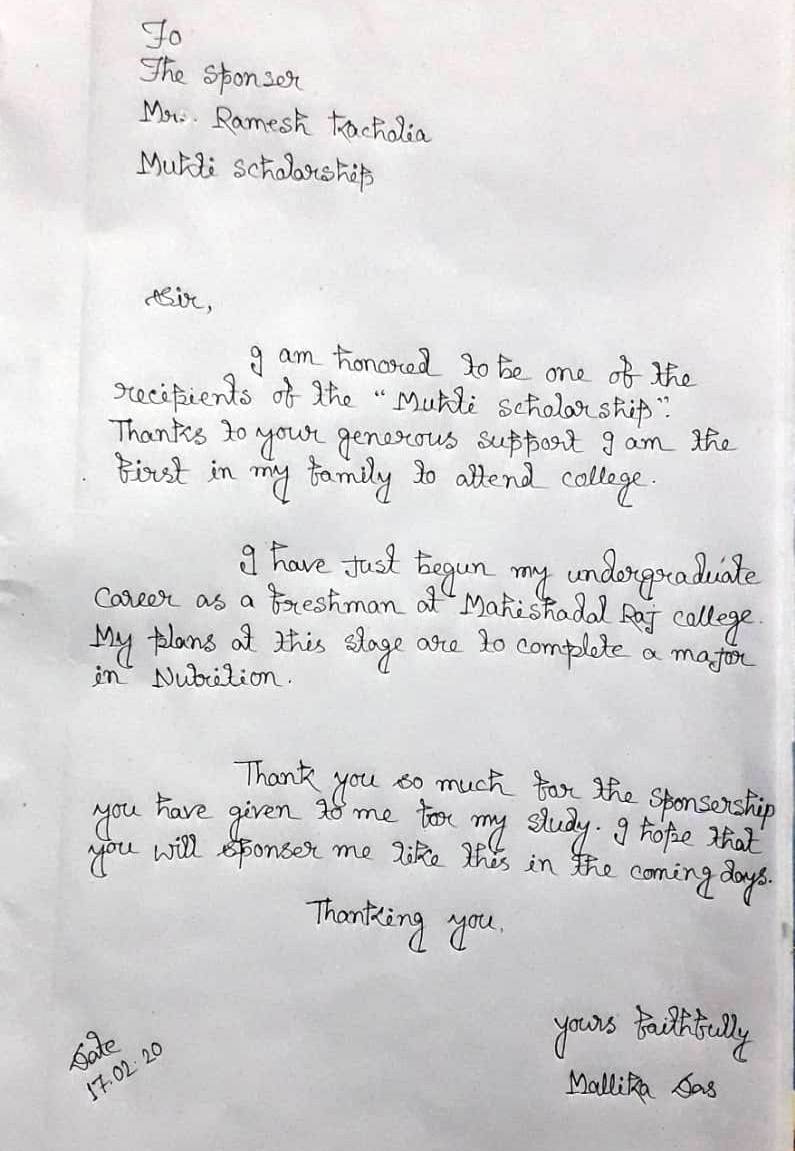 To
The Sponser
Mr. Ramesh Kacholia
Mukti scholarship
Sir,
I am honored to be one of the
recipients of the "Mukti scholarship".
Thanks to your generous support I am the
first in my family to attend college.
I have just begun my undergraduate
Career as a freshman at Mahishadal Raj college.
My plans at this stage are to complete a major
in Nutrition.
Thank you so much for the sponsership
you have given to me for my study. I hope that
you will sponser me like this in the coming days.
Thanking you.
yours faithfully
Mallika Das
Date
17.02.20